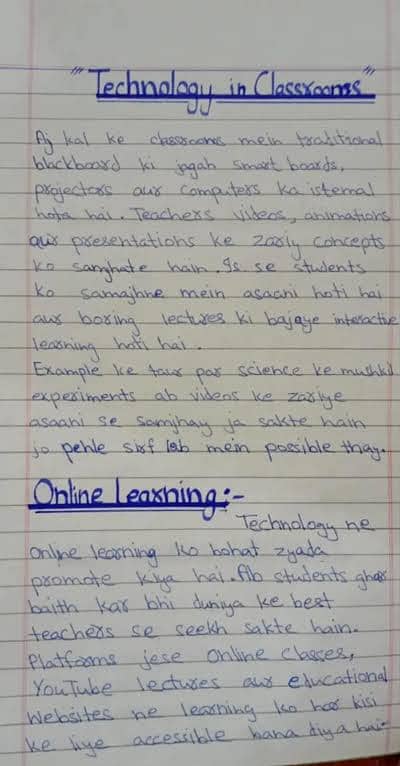 "Technology in Classrooms"
Aj kal ke classrooms mein traditional
blackboard ki jagah smart boards,
projectors aur computers ka istemal
hota hai. Teachers videos, animations
aur presentations ke zariy concepts
ko samjhate hain. Is se students
ko samajhne mein asaani hoti hai
aur boring lectures ki bajaye interactive
learning hoti hai.
Example ke taur par science ke mushkil
experiments ab videos ke zariye
asaani se samjhay ja sakte hain
jo pehle sirf lab mein possible thay.
Online Learning:-
Technology ne
online learning ko bohat zyada
promote kiya hai. Ab students ghar
baith kar bhi duniya ke best
teachers se seekh sakte hain.
Platforms jese Online Classes,
YouTube lectures aur educational
websites ne learning ko har kisi
ke liye accessible bana diya hai.